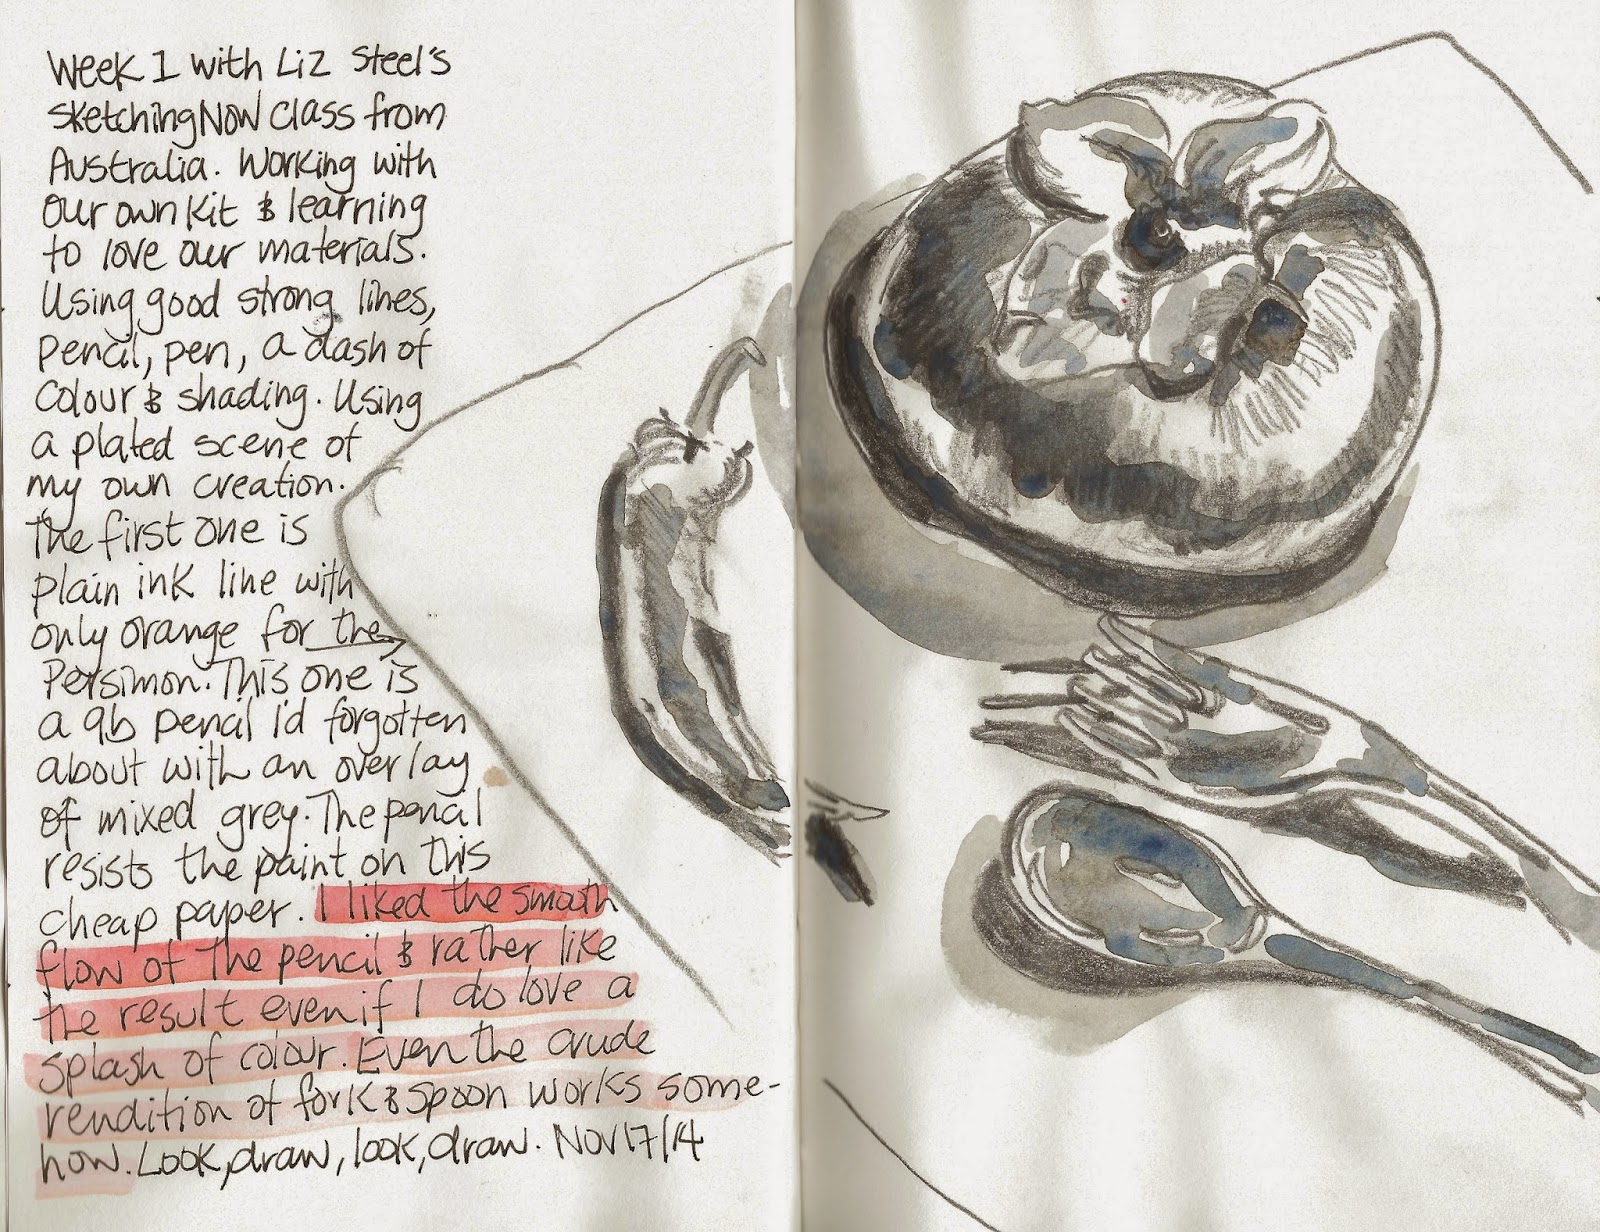 Week 1 with Liz Steel's
sketchingNOW class from
Australia. Working with
our own kit & learning
to love our materials.
Using good strong lines,
pencil, pen, a dash of
colour & shading. Using
a plated scene of
my own creation.
The first one is
plain ink line with
only orange for the
Persimon. This one is
a 9b pencil I'd forgotten
about with an overlay
of mixed grey. The pencil
resists the paint on this
cheap paper. I liked the smooth
flow of the pencil & rather like
the result even if I do love a
splash of colour. Even the crude
rendition of fork & spoon works some-
how. Look, draw, look, draw. Nov 17/14